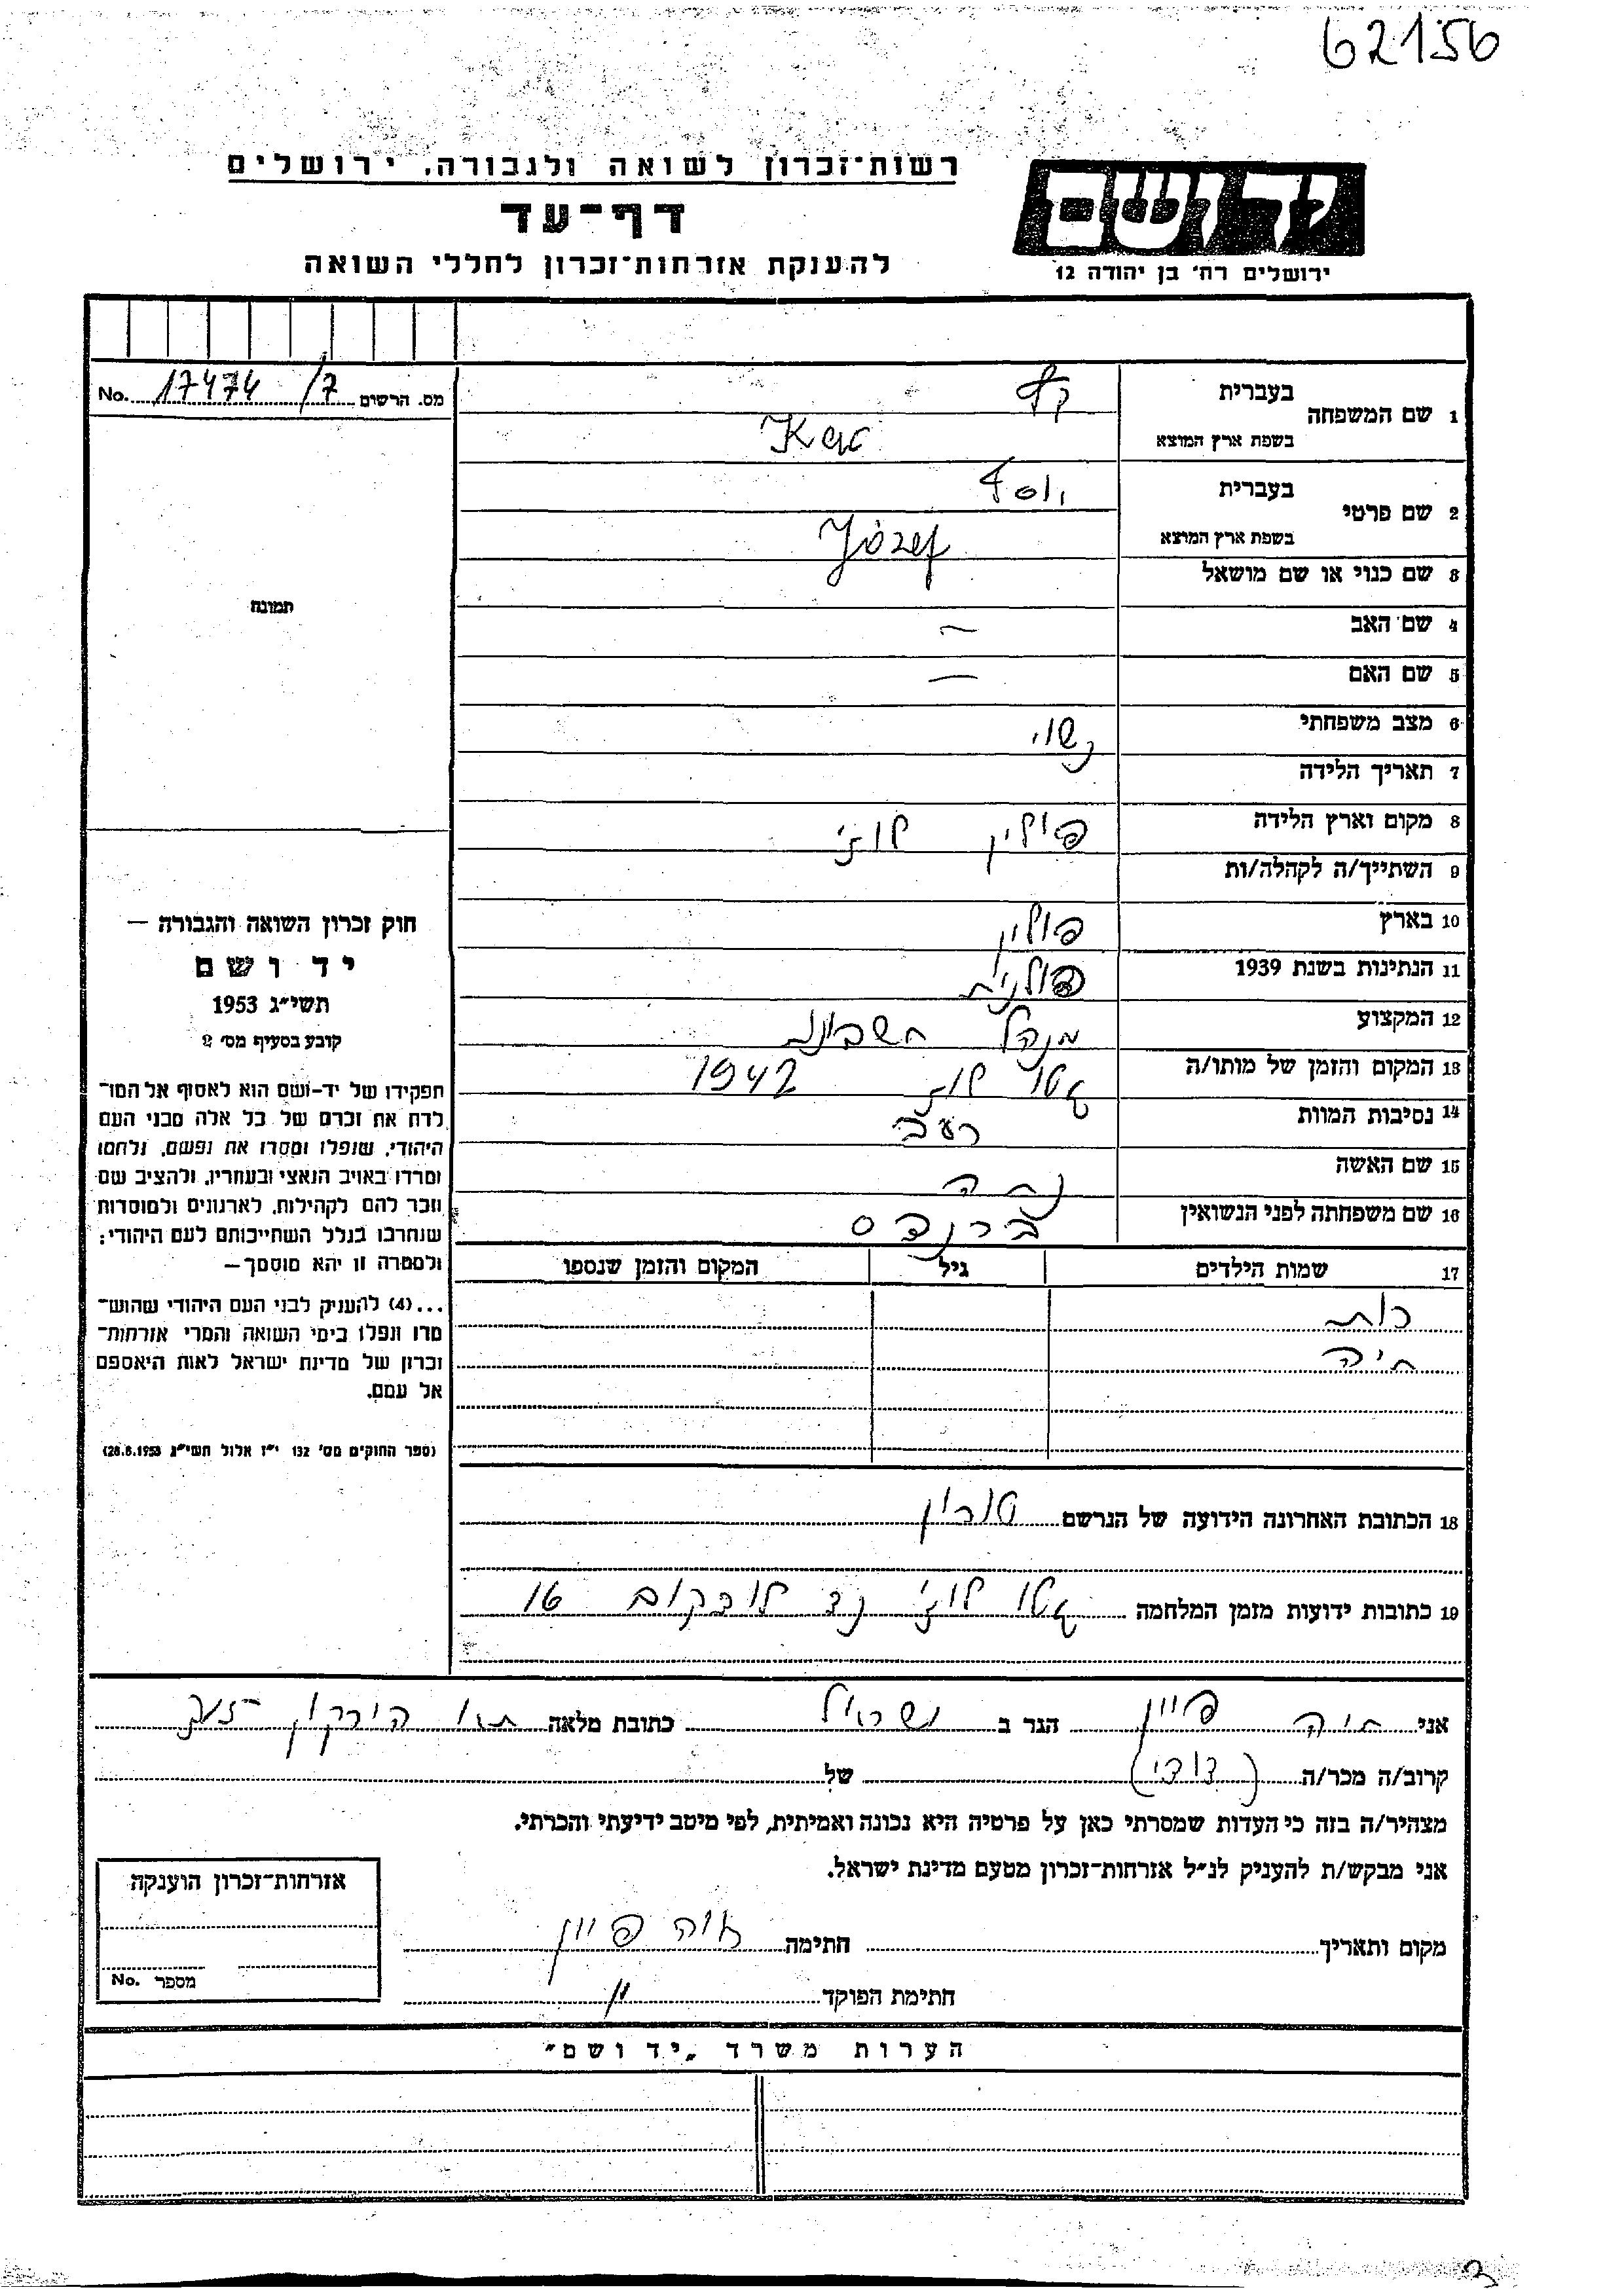 62156
רשות־זכרון לשואה ולגבורה, ירושלים
דף־עד
להענקת אזרחות־זכרון לחללי השואה
יד ושם
ירושלים רח׳ בן יהודה 12
No. 17474/7 מס. הרשום
תמונה
1 שם המשפחה בעברית קץ
בשפת ארץ המוצא Kac
2 שם פרטי בעברית יוסף
בשפת ארץ המוצא Józef
3 שם כנוי או שם מושאל
4 שם האב —
5 שם האם —
6 מצב משפחתי נשוי
7 תאריך הלידה
8 מקום וארץ הלידה פולין לודז׳
9 השתייך/ה לקהלה/ות
10 בארץ פולין
11 הנתינות בשנת 1939 פולנית
12 המקצוע מנהל חשבונות
13 המקום והזמן של מותו/ה גטו לודז 1942
14 נסיבות המוות רעב
15 שם האשה נחה
16 שם משפחתה לפני הנשואין ברנדס
17 שמות הילדים גיל המקום והזמן שנספו
רות
חיה
18 הכתובת האחרונה הידועה של הנרשם
19 כתובות ידועות מזמן המלחמה גטו לודז׳ 16
חוק זכרון השואה והגבורה —
יד ושם
תשי״ג 1953
קובע בסעיף מס׳ 2
תפקידו של יד-ושם הוא לאסוף אל המו־
לדת את זכרם של כל אלה מבני העם
היהודי, שנפלו ומסרו את נפשם, נלחמו
ומרדו באויב הנאצי ובעוזריו, ולהציב שם
וזכר להם לקהילות, לארגונים ולמוסדות
שנחרבו בגלל השתייכותם לעם היהודי;
ולמטרה זו יהא מוסמך—
...(4) להעניק לבני העם היהודי שהוש־
מדו ונפלו בימי השואה והמרי אזרחות־
זכרון של מדינת ישראל לאות היאספם
אל עמם.
(ספר החוקים מס׳ 132 י״ז אלול תשי״ג 28.8.1953)
אני חיה פיין הגר ב ישראל כתובת מלאה הירקון
קרוב/ה מכר/ה (דודי) של
מצהיר/ה בזה כי העדות שמסרתי כאן על פרטיה היא נכונה ואמיתית, לפי מיטב ידיעתי והכרתי.
אני מבקש/ת להעניק לנ״ל אזרחות־זכרון מטעם מדינת ישראל.
מקום ותאריך חתימה חיה פיין
חתימת הפוקד
אזרחות־זכרון הוענקה
מספר No.
הערות משרד „יד ושם״